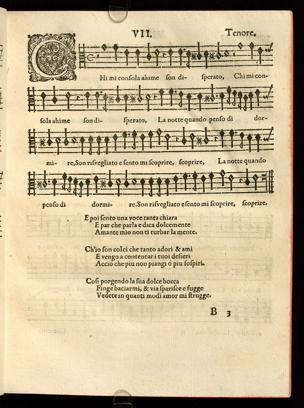 VII. Tenore.
CHi mi consola ahime son di- sperato, Chi mi con-
sola ahime son di- sperato, La notte quando penso di dor-
mi- re, Son risvegliato e sento mi scoprire, scoprire, La notte quando
penso di dormi- re, Son risvegliato e sento mi scoprire, scoprire.
E poi sento una voce tanta chiara
E par che parla e dica dolcemente
Amante mio non ti turbar la mente.
Ch'io son colei che tanto adori & ami
E vengo a contentar i tuoi desieri
Accio che piu non piangi ó piu sospiri.
Cosi porgendo la sua dolce bocca
Finge baciarmi, & via sparisce e fugge
Vedete in quanti modi amor mi strugge.
B 3